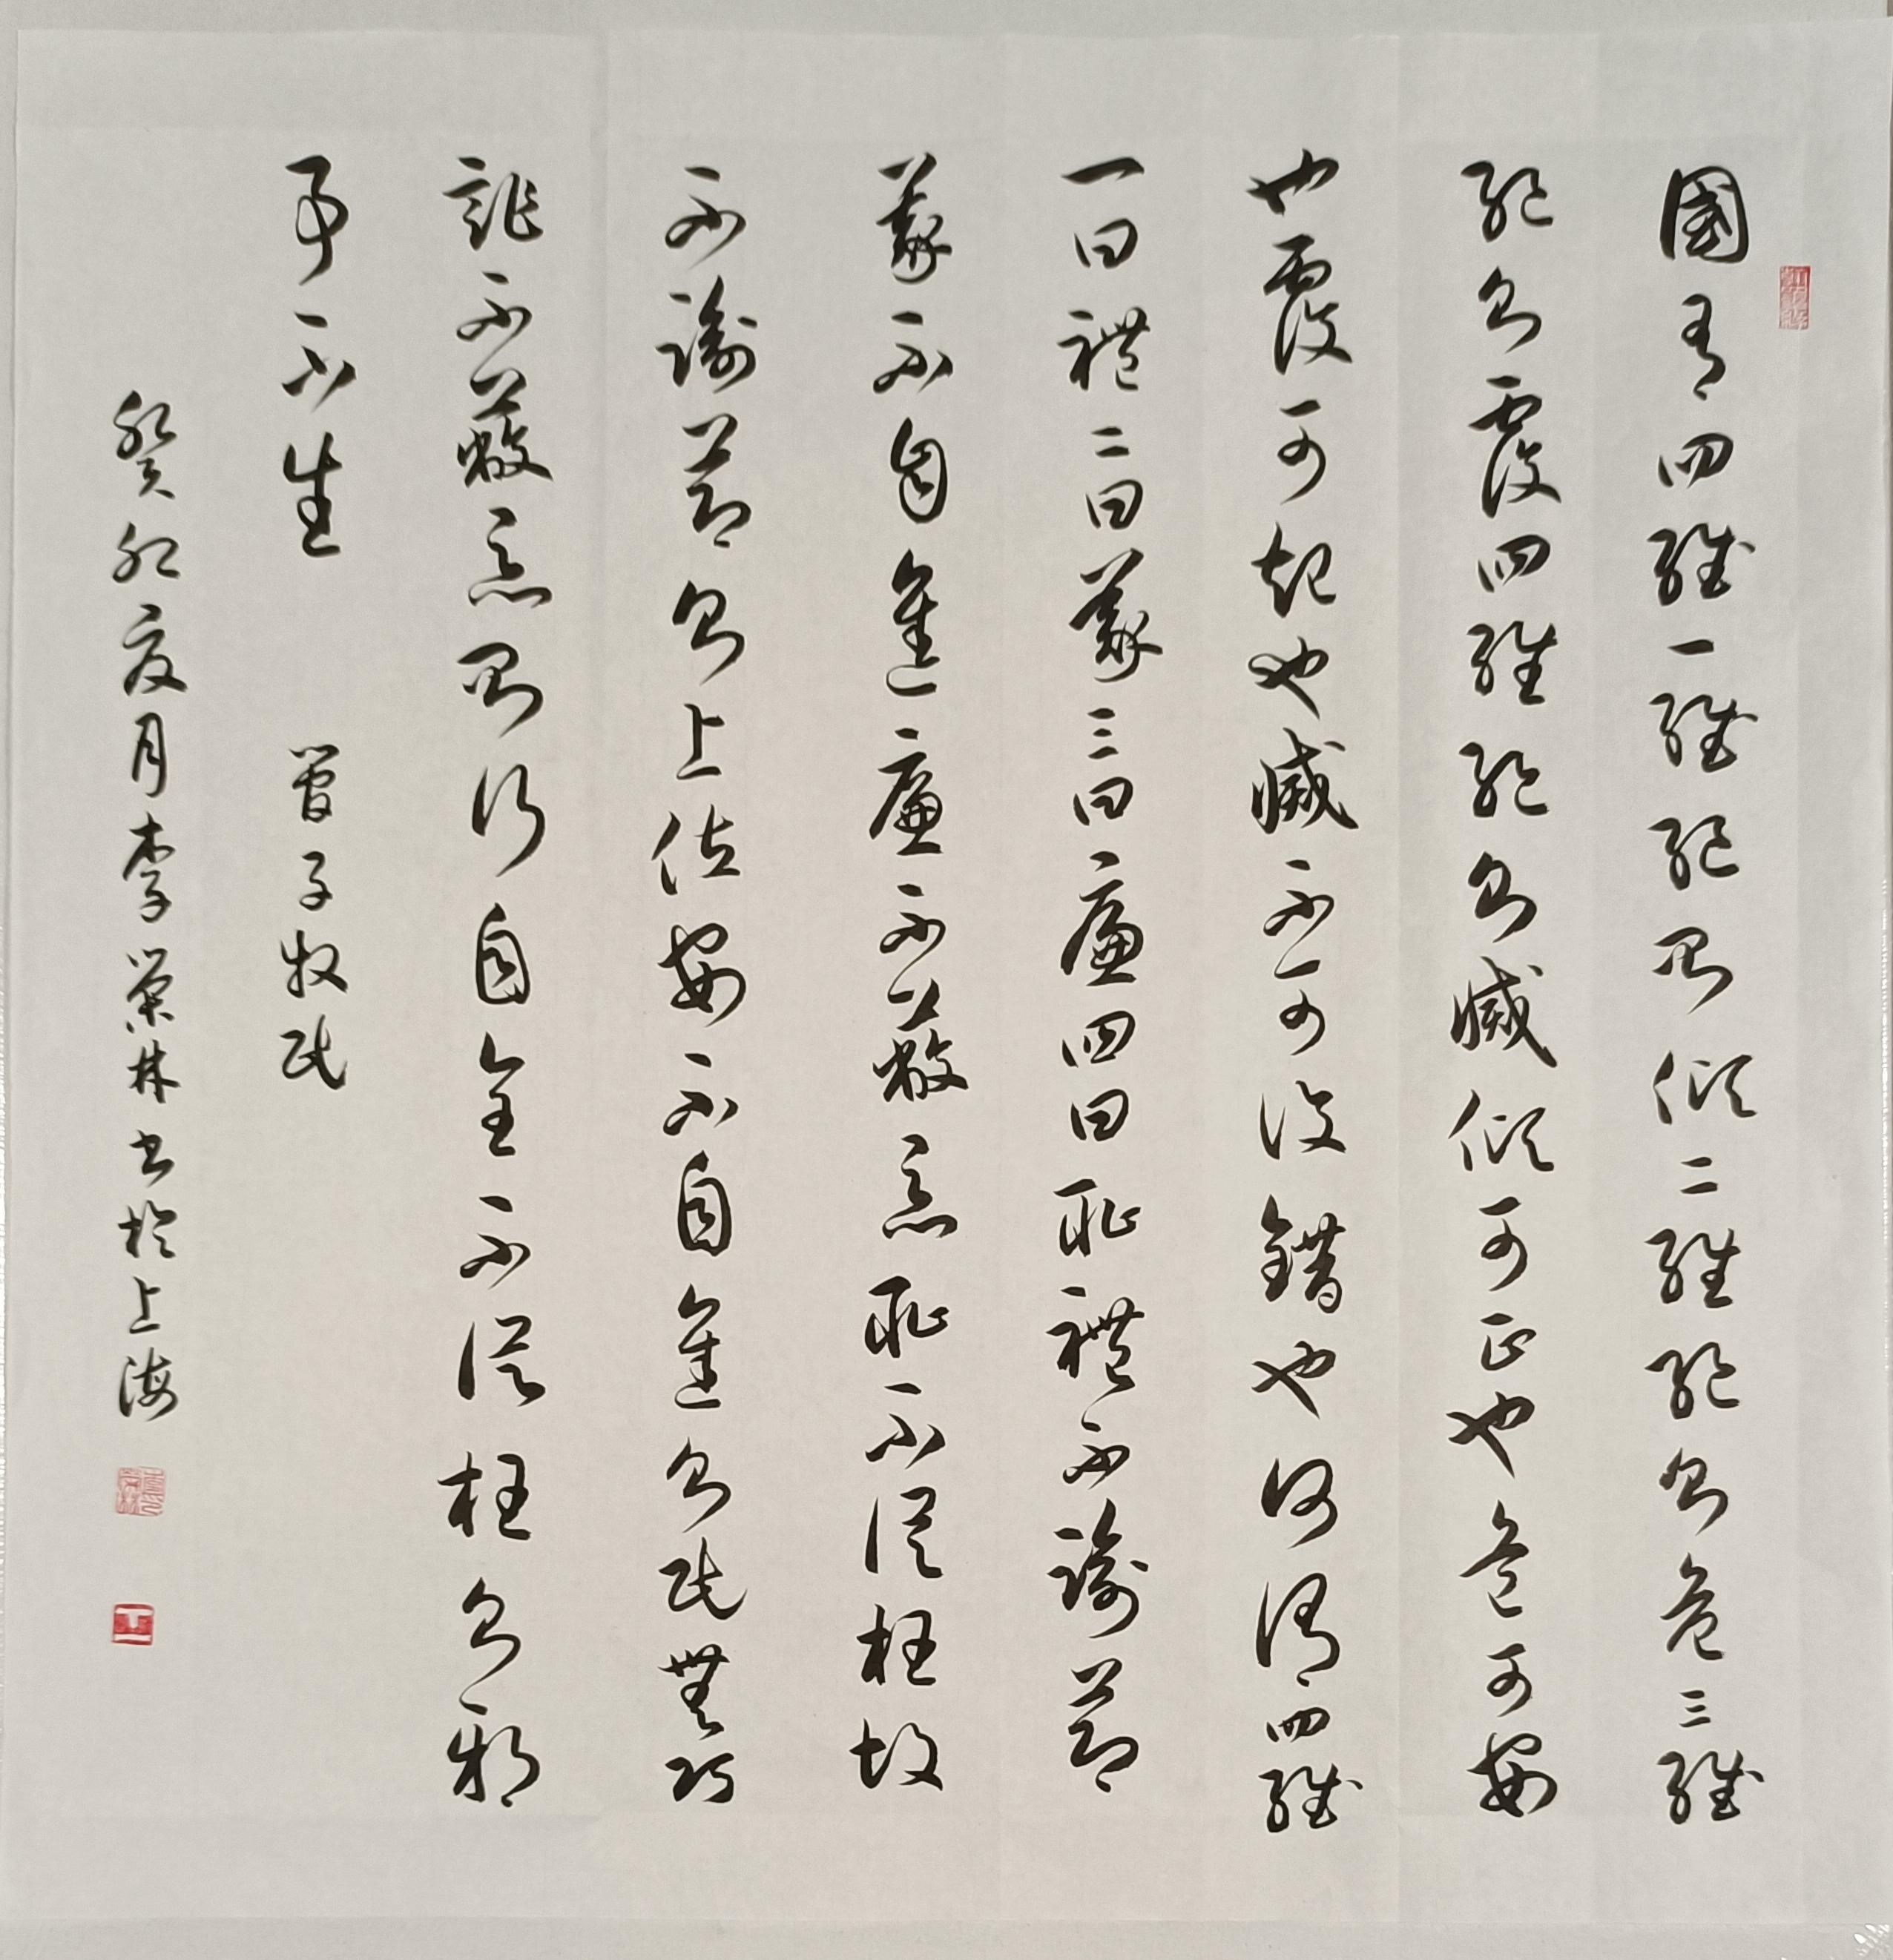 國有四維一維絕則傾二維絕則危三維
絕則覆四維絕則滅傾可正也危可安
也覆可起也滅不可復錯也何謂四維
一曰禮二曰義三曰廉四曰耻禮不踰節
義不自進廉不蔽惡耻不從枉故
不踰節則上位安不自進則民無巧
詐不蔽惡則行自全不從枉則邪
事不生 管子牧民
癸卯夏月李榮林書於上海